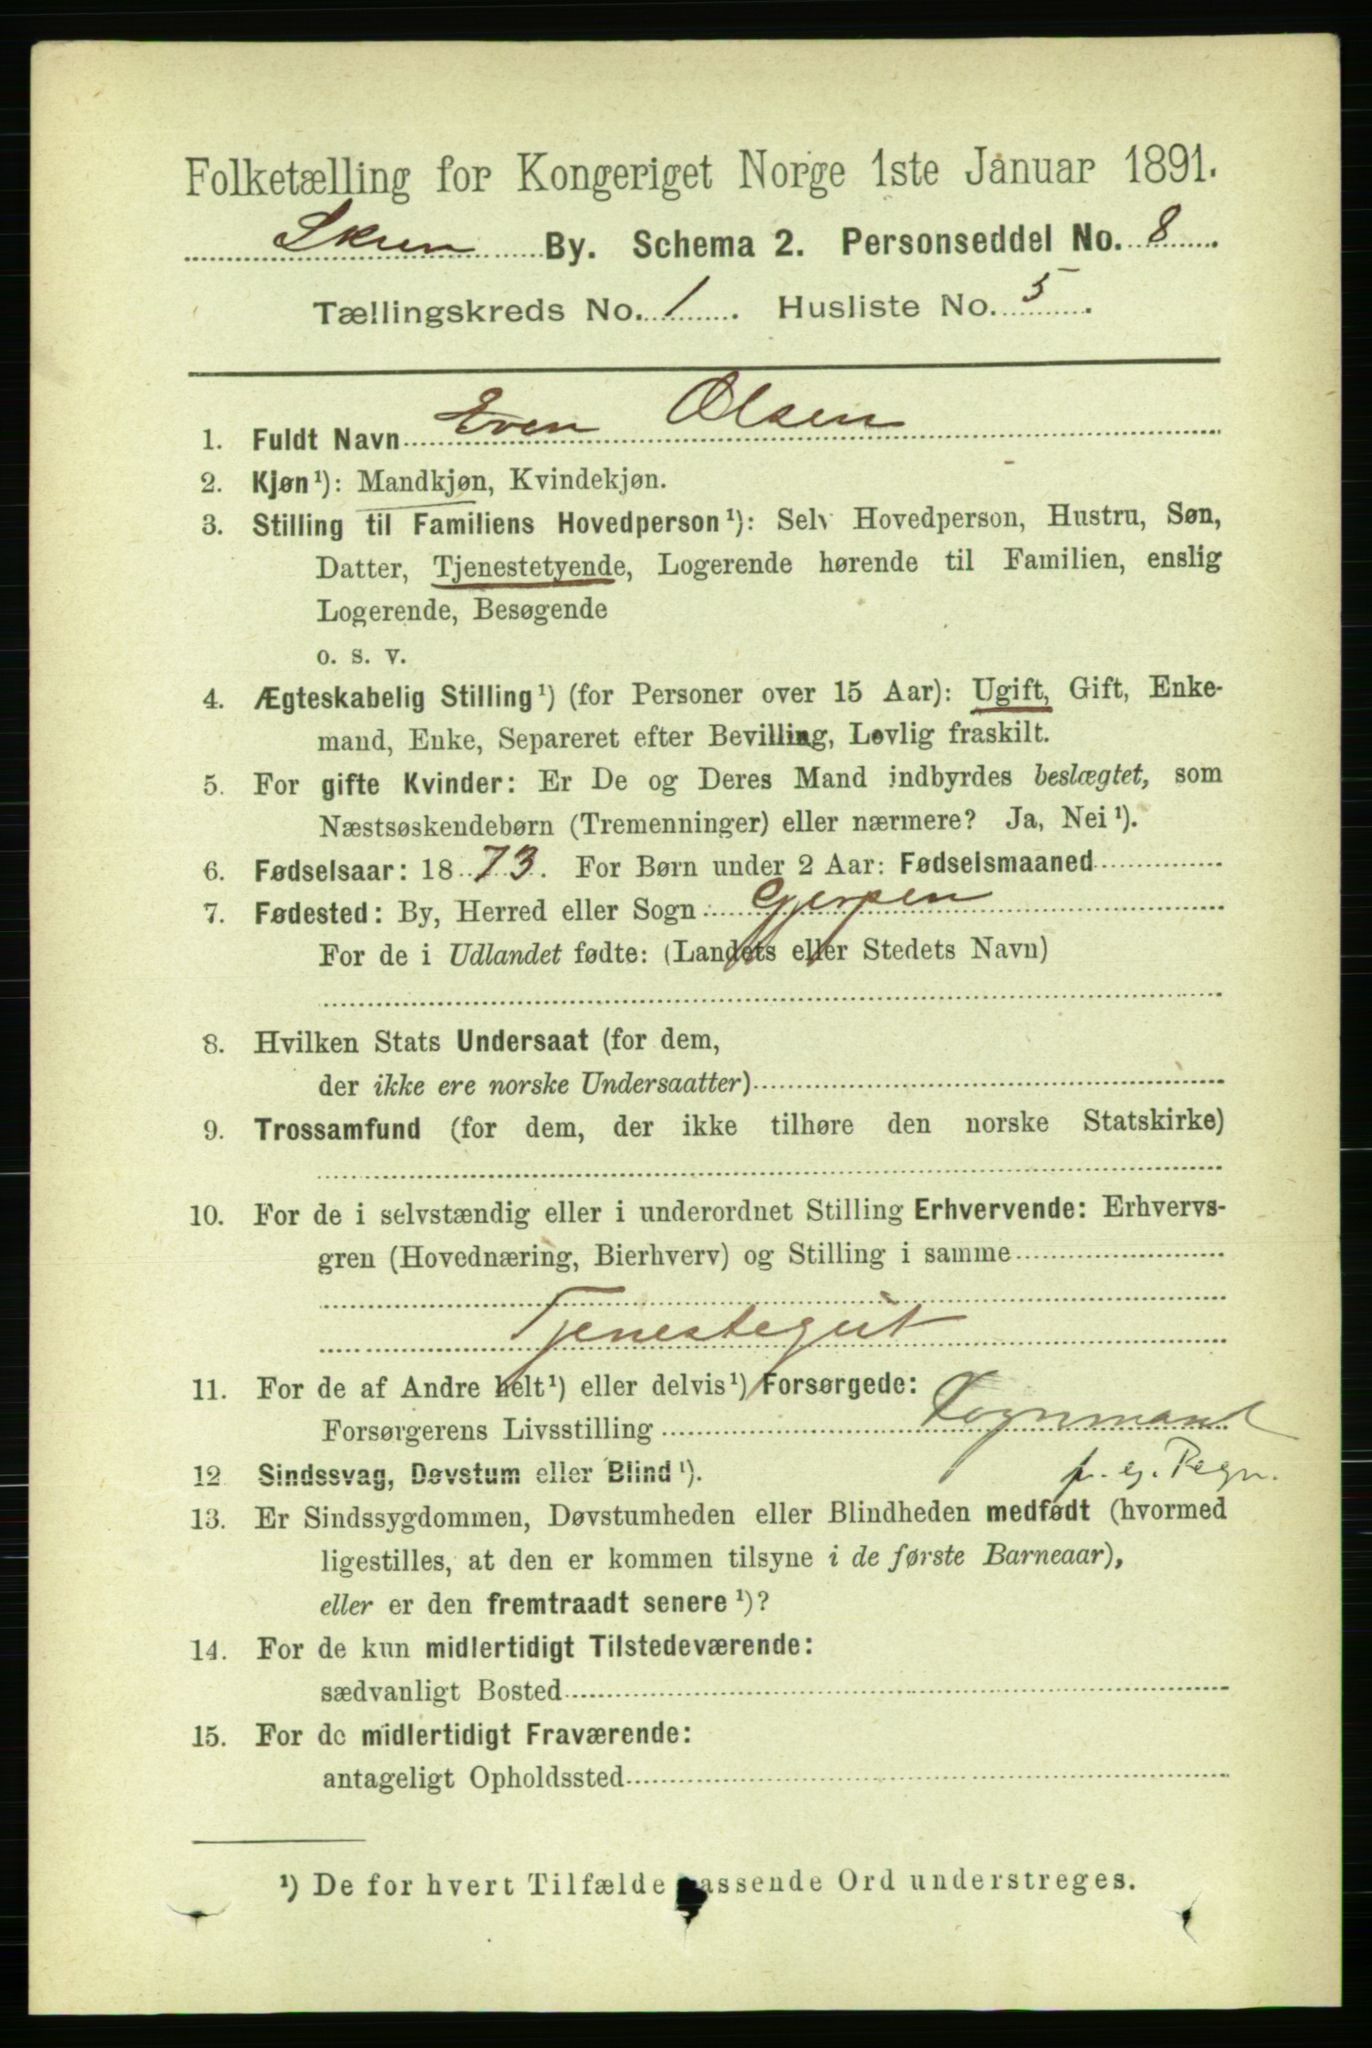 Folketælling for Kongeriget Norge 1ste Januar 1891.
Skien By. Schema 2. Personseddel No. 8.
Tællingskreds No. 1. Husliste No. 5.
1. Fuldt Navn Even Olsen
2. Kjøn¹): Mandkjøn, Kvindekjøn.
3. Stilling til Familiens Hovedperson¹): Selv Hovedperson, Hustru, Søn,
Datter, Tjenestetyende, Logerende hørende til Familien, enslig
Logerende, Besøgende
o. s. v.
4. Ægteskabelig Stilling¹) (for Personer over 15 Aar): Ugift, Gift, Enke-
mand, Enke, Separeret efter Bevilling, Lovlig fraskilt.
5. For gifte Kvinder: Er De og Deres Mand indbyrdes beslægtet, som
Næstsøskendebørn (Tremenninger) eller nærmere? Ja, Nei¹).
6. Fødselsaar: 1873. For Børn under 2 Aar: Fødselsmaaned
7. Fødested: By, Herred eller Sogn Gjerpen
For de i Udlandet fødte: (Landets eller Stedets Navn)
8. Hvilken Stats Undersaat (for dem,
der ikke ere norske Undersaatter)
9. Trossamfund (for dem, der ikke tilhøre den norske Statskirke)
10. For de i selvstændig eller i underordnet Stilling Erhvervende: Erhvervs-
gren (Hovednæring, Bierhverv) og Stilling i samme
Tjenestegut
11. For de af Andre helt¹) eller delvis¹) Forsørgede:
Forsørgerens Livsstilling Vognmand
12 Sindssvag, Døvstum eller Blind¹). f. e. Regn.
13. Er Sindssygdommen, Døvstumheden eller Blindheden medfødt (hvormed
ligestilles, at den er kommen tilsyne i de første Barneaar),
eller er den fremtraadt senere¹)?
14. For de kun midlertidigt Tilstedeværende:
sædvanligt Bosted
15. For de midlertidigt Fraværende:
antageligt Opholdssted
¹) De for hvert Tilfælde passende Ord understreges.